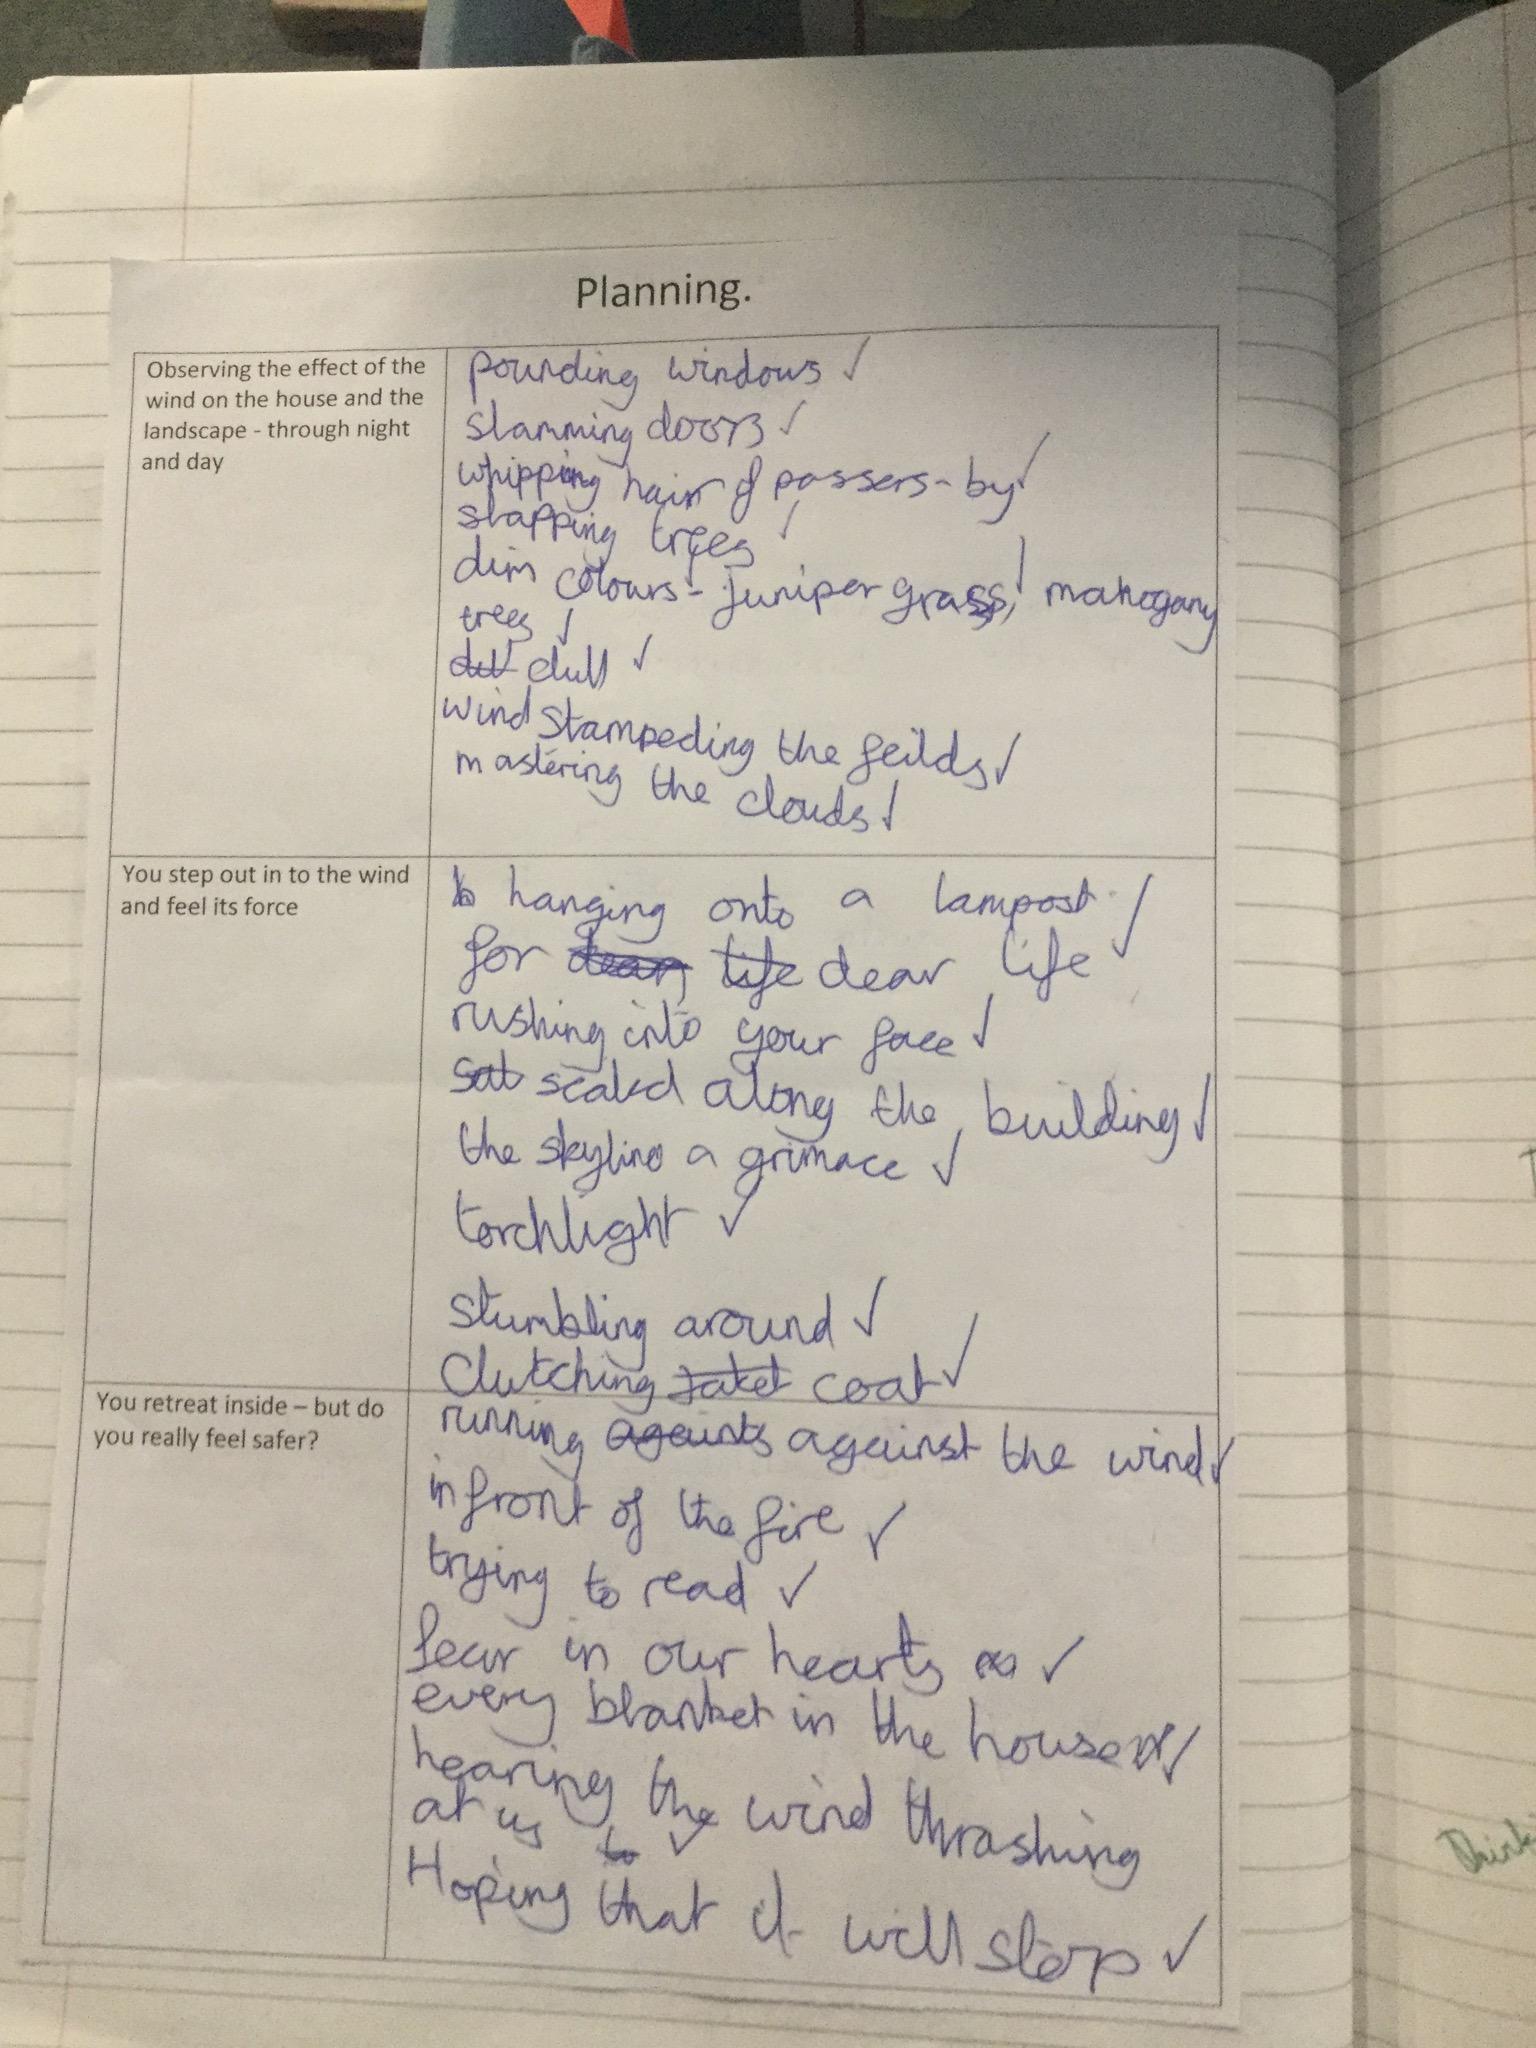 Planning.
Observing the effect of the
wind on the house and the
landscape - through night
and day
pounding windows ✓
slamming doors ✓
whipping hair of passers-by ✓
slapping trees ✓
dim colours - juniper grass, ✓ mahogany
trees ✓
dull ✓
wind stampeding the feilds ✓
mastering the clouds ✓
You step out in to the wind
and feel its force
hanging onto a lampost ✓
for life dear life
rushing into your face ✓
scaled along the building ✓
the skyline a grimace ✓
torchlight ✓
stumbling around ✓
Clutching jaket coat ✓
You retreat inside – but do
you really feel safer?
running againts against the wind ✓
in front of the fire ✓
trying to read ✓
fear in our hearts ✓
every blanket in the house ✓
hearing the wind thrashing
at us to ✓
Hoping that it will stop ✓
Think